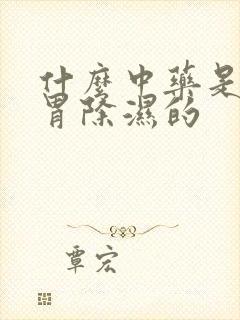 什麼中藥是
胃除濕的
覃宏